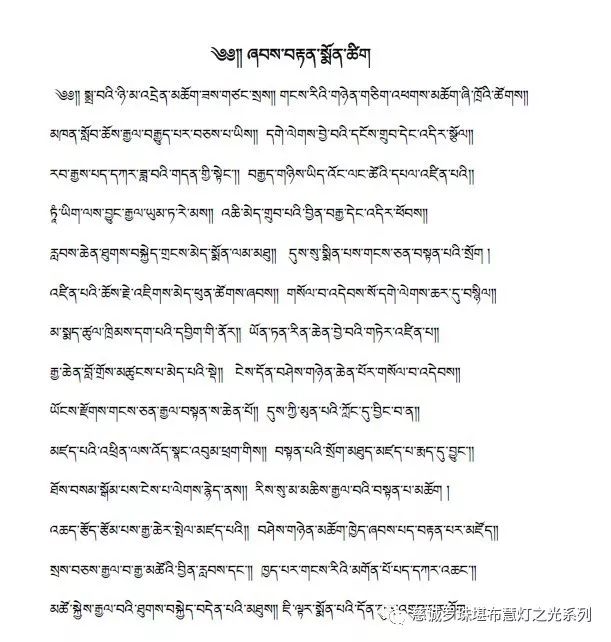 ༄༅།། ཞབས་བརྟན་སྨོན་ཚིག
༄༅།། སྨྲ་བའི་ཉི་མ་འདྲེན་མཆོག་ཟས་གཙང་སྲས།། གངས་རིའི་གཉེན་གཅིག་འཕགས་མཆོག་ཞི་ཁྲོའི་ཚོགས།།
མཁན་སློབ་ཆོས་རྒྱལ་བརྒྱུད་པར་བཅས་པ་ཡིས།། དགེ་ལེགས་བྱེ་བའི་དངོས་གྲུབ་དེང་འདིར་སྩོལ།།
རབ་རྒྱས་པད་དཀར་ཟླ་བའི་གདན་གྱི་སྟེང་།། བརྒྱད་གཉིས་ཡིད་འོང་ལང་ཚོའི་དཔལ་འཛིན་པའི།།
ཏཱཾ་ཡིག་ལས་བྱུང་རྒྱལ་ཡུམ་ཏ་རེ་མས།། འཆི་མེད་གྲུབ་པའི་བྱིན་བརྒྱ་དེང་འདིར་ཕོབས།།
རླབས་ཆེན་ཐུགས་བསྐྱེད་གྲངས་མེད་སྨོན་ལམ་མཐུ།། དུས་སུ་སྨིན་པས་གངས་ཅན་བསྟན་པའི་སྲོག །
འཛིན་པའི་ཆོས་རྗེ་འཇིགས་མེད་ཕུན་ཚོགས་ཞབས།། གསོལ་བ་འདེབས་སོ་དགེ་ལེགས་ཆར་དུ་བསྙིལ།།
མ་སྨད་ཚུལ་ཁྲིམས་དག་པའི་དབྱིག་གི་ནོར།། ཡོན་ཏན་རིན་ཆེན་བྱེ་བའི་གཏེར་འཛིན་པ།།
རྒྱ་ཆེན་བློ་གྲོས་མཚུངས་པ་མེད་པའི་སྡེ།། ངེས་དོན་བཤེས་གཉེན་ཆེན་པོར་གསོལ་བ་འདེབས།།
ཡོངས་རྫོགས་གངས་ཅན་རྒྱལ་བསྟན་ས་ཆེན་པོ།། དུས་ཀྱི་མུན་པའི་ཀློང་དུ་བྱིང་བ་ན།།
མཛད་པའི་འཕྲིན་ལས་འོད་སྣང་འབུམ་ཕྲག་གིས།། བསྟན་པའི་སྲོག་མཐུད་མཛད་པ་རྨད་དུ་བྱུང་།།
ཐོས་བསམ་སྒོམ་པས་ངེས་པ་ལེགས་རྙེད་ནས།། རིས་སུ་མ་མཆིས་རྒྱལ་བའི་བསྟན་པ་མཆོག །
འཆད་རྩོད་རྩོམ་པས་རྒྱ་ཆེར་སྤེལ་མཛད་པའི།། བཤེས་གཉེན་མཆོག་ཁྱེད་ཞབས་པད་བརྟན་པར་མཛོད།།
སྲས་བཅས་རྒྱལ་བ་རྒྱ་མཚོའི་བྱིན་རླབས་དང་།། ཁྱད་པར་གངས་རིའི་མགོན་པོ་པད་དཀར་འཆང་།།
མཚོ་སྐྱེས་རྒྱལ་བའི་ཐུགས་བསྐྱེད་བདེན་པའི་མཐུས།། ཇི་ལྟར་སྨོན་པའི་དོན་
慈诚罗珠堪布慧灯之光系列